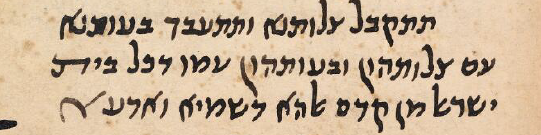 תתקבל צלותנא ותתעבד בעותנא
עם צלותהון ובעותהון עמו דכל בית
ישראל מן קדם אלהא דשמיא וארעא